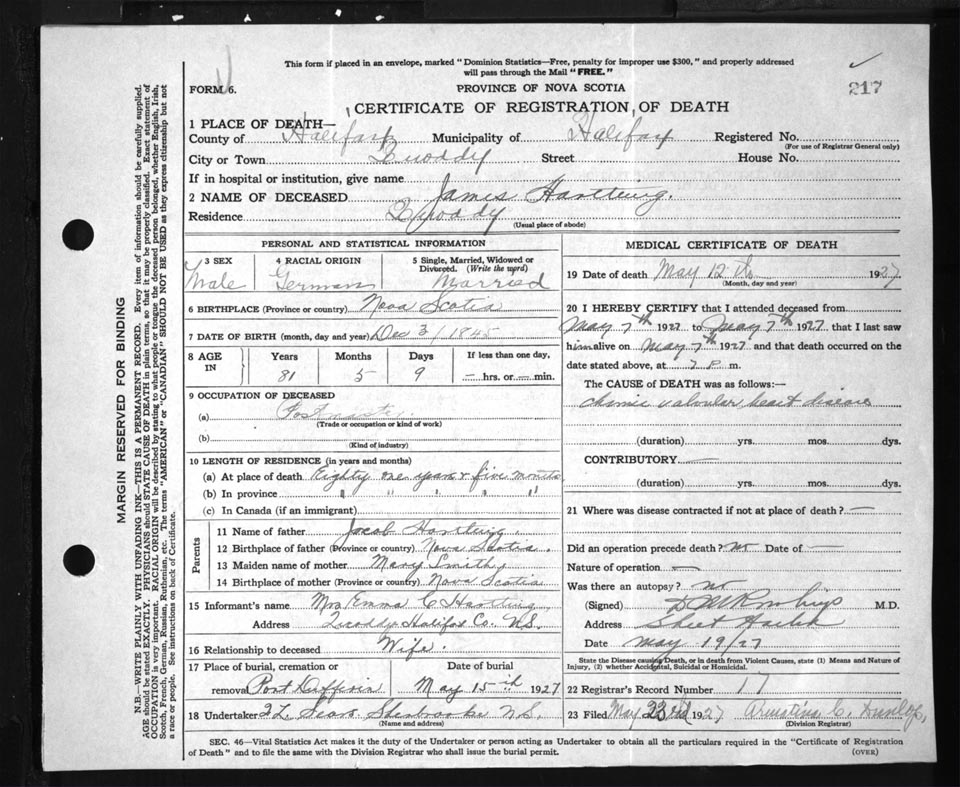 This form if placed in an envelope, marked "Dominion Statistics—Free, penalty for improper use $300," and properly addressed
will pass through the Mail "FREE."
FORM 6.
PROVINCE OF NOVA SCOTIA
217
CERTIFICATE OF REGISTRATION OF DEATH
1 PLACE OF DEATH—
County of Halifax Municipality of Halifax Registered No.
(For use of Registrar General only)
City or Town Quoddy Street House No.
If in hospital or institution, give name
2 NAME OF DECEASED James Hartling.
Residence Quoddy
(Usual place of abode)
PERSONAL AND STATISTICAL INFORMATION
3 SEX 4 RACIAL ORIGIN 5 Single, Married, Widowed or
Divorced. (Write the word)
Male German Married
6 BIRTHPLACE (Province or country) Nova Scotia
7 DATE OF BIRTH (month, day and year) Dec 3/1845
8 AGE IN Years Months Days If less than one day,
81 5 9 — hrs. or — min.
9 OCCUPATION OF DECEASED
(a) Postmaster
(Trade or occupation or kind of work)
(b)
(Kind of industry)
10 LENGTH OF RESIDENCE (in years and months)
(a) At place of death Eighty one years & five months
(b) In province " " " " "
(c) In Canada (if an immigrant)
Parents
11 Name of father Jacob Hartling
12 Birthplace of father (Province or country) Nova Scotia.
13 Maiden name of mother Mary Smith
14 Birthplace of mother (Province or country) Nova Scotia
15 Informant's name Mrs Emma C Hartling
Address Quoddy Halifax Co. N.S.
16 Relationship to deceased Wife.
17 Place of burial, cremation or Date of burial
removal Port Dufferin May 15th 1927
18 Undertaker Sherbrooke N.S.
(Name and address)
MEDICAL CERTIFICATE OF DEATH
19 Date of death May 12th 1927
(Month, day and year)
20 I HEREBY CERTIFY that I attended deceased from
May 7th 1927 to May 7th 1927 that I last saw
him alive on May 7th 1927 and that death occurred on the
date stated above, at P. m.
The CAUSE of DEATH was as follows:—
chronic valvular heart disease
(duration) yrs. mos. dys.
CONTRIBUTORY —
(duration) yrs. mos. dys.
21 Where was disease contracted if not at place of death? —
Did an operation precede death? no Date of —
Nature of operation —
Was there an autopsy? no
(Signed) M.D.
Address Sheet Harbor
Date May 19/27
State the Disease causing Death, or in death from Violent Causes, state (1) Means and Nature of
Injury, (2) whether Accidental, Suicidal or Homicidal.
22 Registrar's Record Number 17
23 Filed May 23rd 1927 Christina C. Dunlop,
(Division Registrar)
SEC. 46—Vital Statistics Act makes it the duty of the Undertaker or person acting as Undertaker to obtain all the particulars required in the "Certificate of Registration
of Death" and to file the same with the Division Registrar who shall issue the burial permit. (OVER)
MARGIN RESERVED FOR BINDING
N.B.—WRITE PLAINLY WITH UNFADING INK—THIS IS A PERMANENT RECORD. Every item of information should be carefully supplied.
AGE should be stated EXACTLY. PHYSICIANS should STATE CAUSE OF DEATH in plain terms, so that it may be properly classified. Exact statement of
OCCUPATION is very important. RACIAL ORIGIN will be described by stating to what people or tongue the deceased person belonged, whether English, Irish,
Scotch, French, German, Russian, Ruthenian, etc. The terms "AMERICAN" or "CANADIAN" SHOULD NOT BE USED as they express citizenship but not
a race or people. See instructions on back of Certificate.